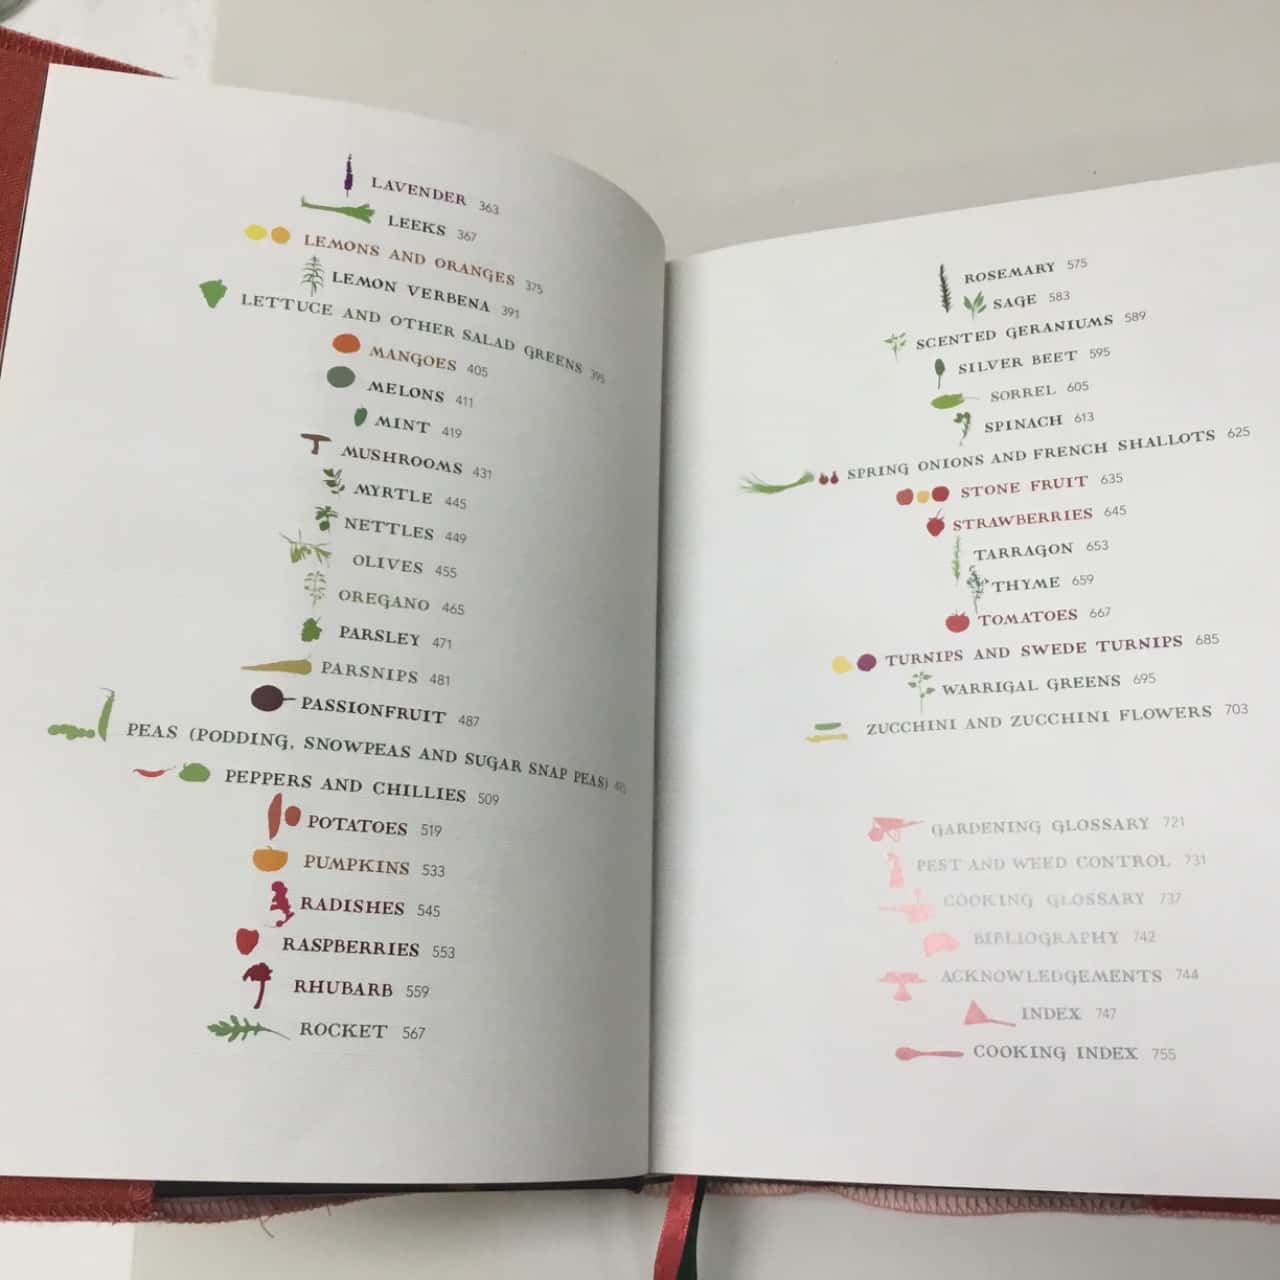 LAVENDER 363
LEEKS 367
LEMONS AND ORANGES 375
LEMON VERBENA 391
LETTUCE AND OTHER SALAD GREENS 395
MANGOES 405
MELONS 411
MINT 419
MUSHROOMS 431
MYRTLE 445
NETTLES 449
OLIVES 455
OREGANO 465
PARSLEY 471
PARSNIPS 481
PASSIONFRUIT 487
PEAS (PODDING, SNOWPEAS AND SUGAR SNAP PEAS)
PEPPERS AND CHILLIES 509
POTATOES 519
PUMPKINS 533
RADISHES 545
RASPBERRIES 553
RHUBARB 559
ROCKET 567
ROSEMARY 575
SAGE 583
SCENTED GERANIUMS 589
SILVER BEET 595
SORREL 605
SPINACH 613
SPRING ONIONS AND FRENCH SHALLOTS 625
STONE FRUIT 635
STRAWBERRIES 645
TARRAGON 653
THYME 659
TOMATOES 667
TURNIPS AND SWEDE TURNIPS 685
WARRIGAL GREENS 695
ZUCCHINI AND ZUCCHINI FLOWERS 703
GARDENING GLOSSARY 721
PEST AND WEED CONTROL 731
COOKING GLOSSARY 737
BIBLIOGRAPHY 742
ACKNOWLEDGEMENTS 744
INDEX 747
COOKING INDEX 755